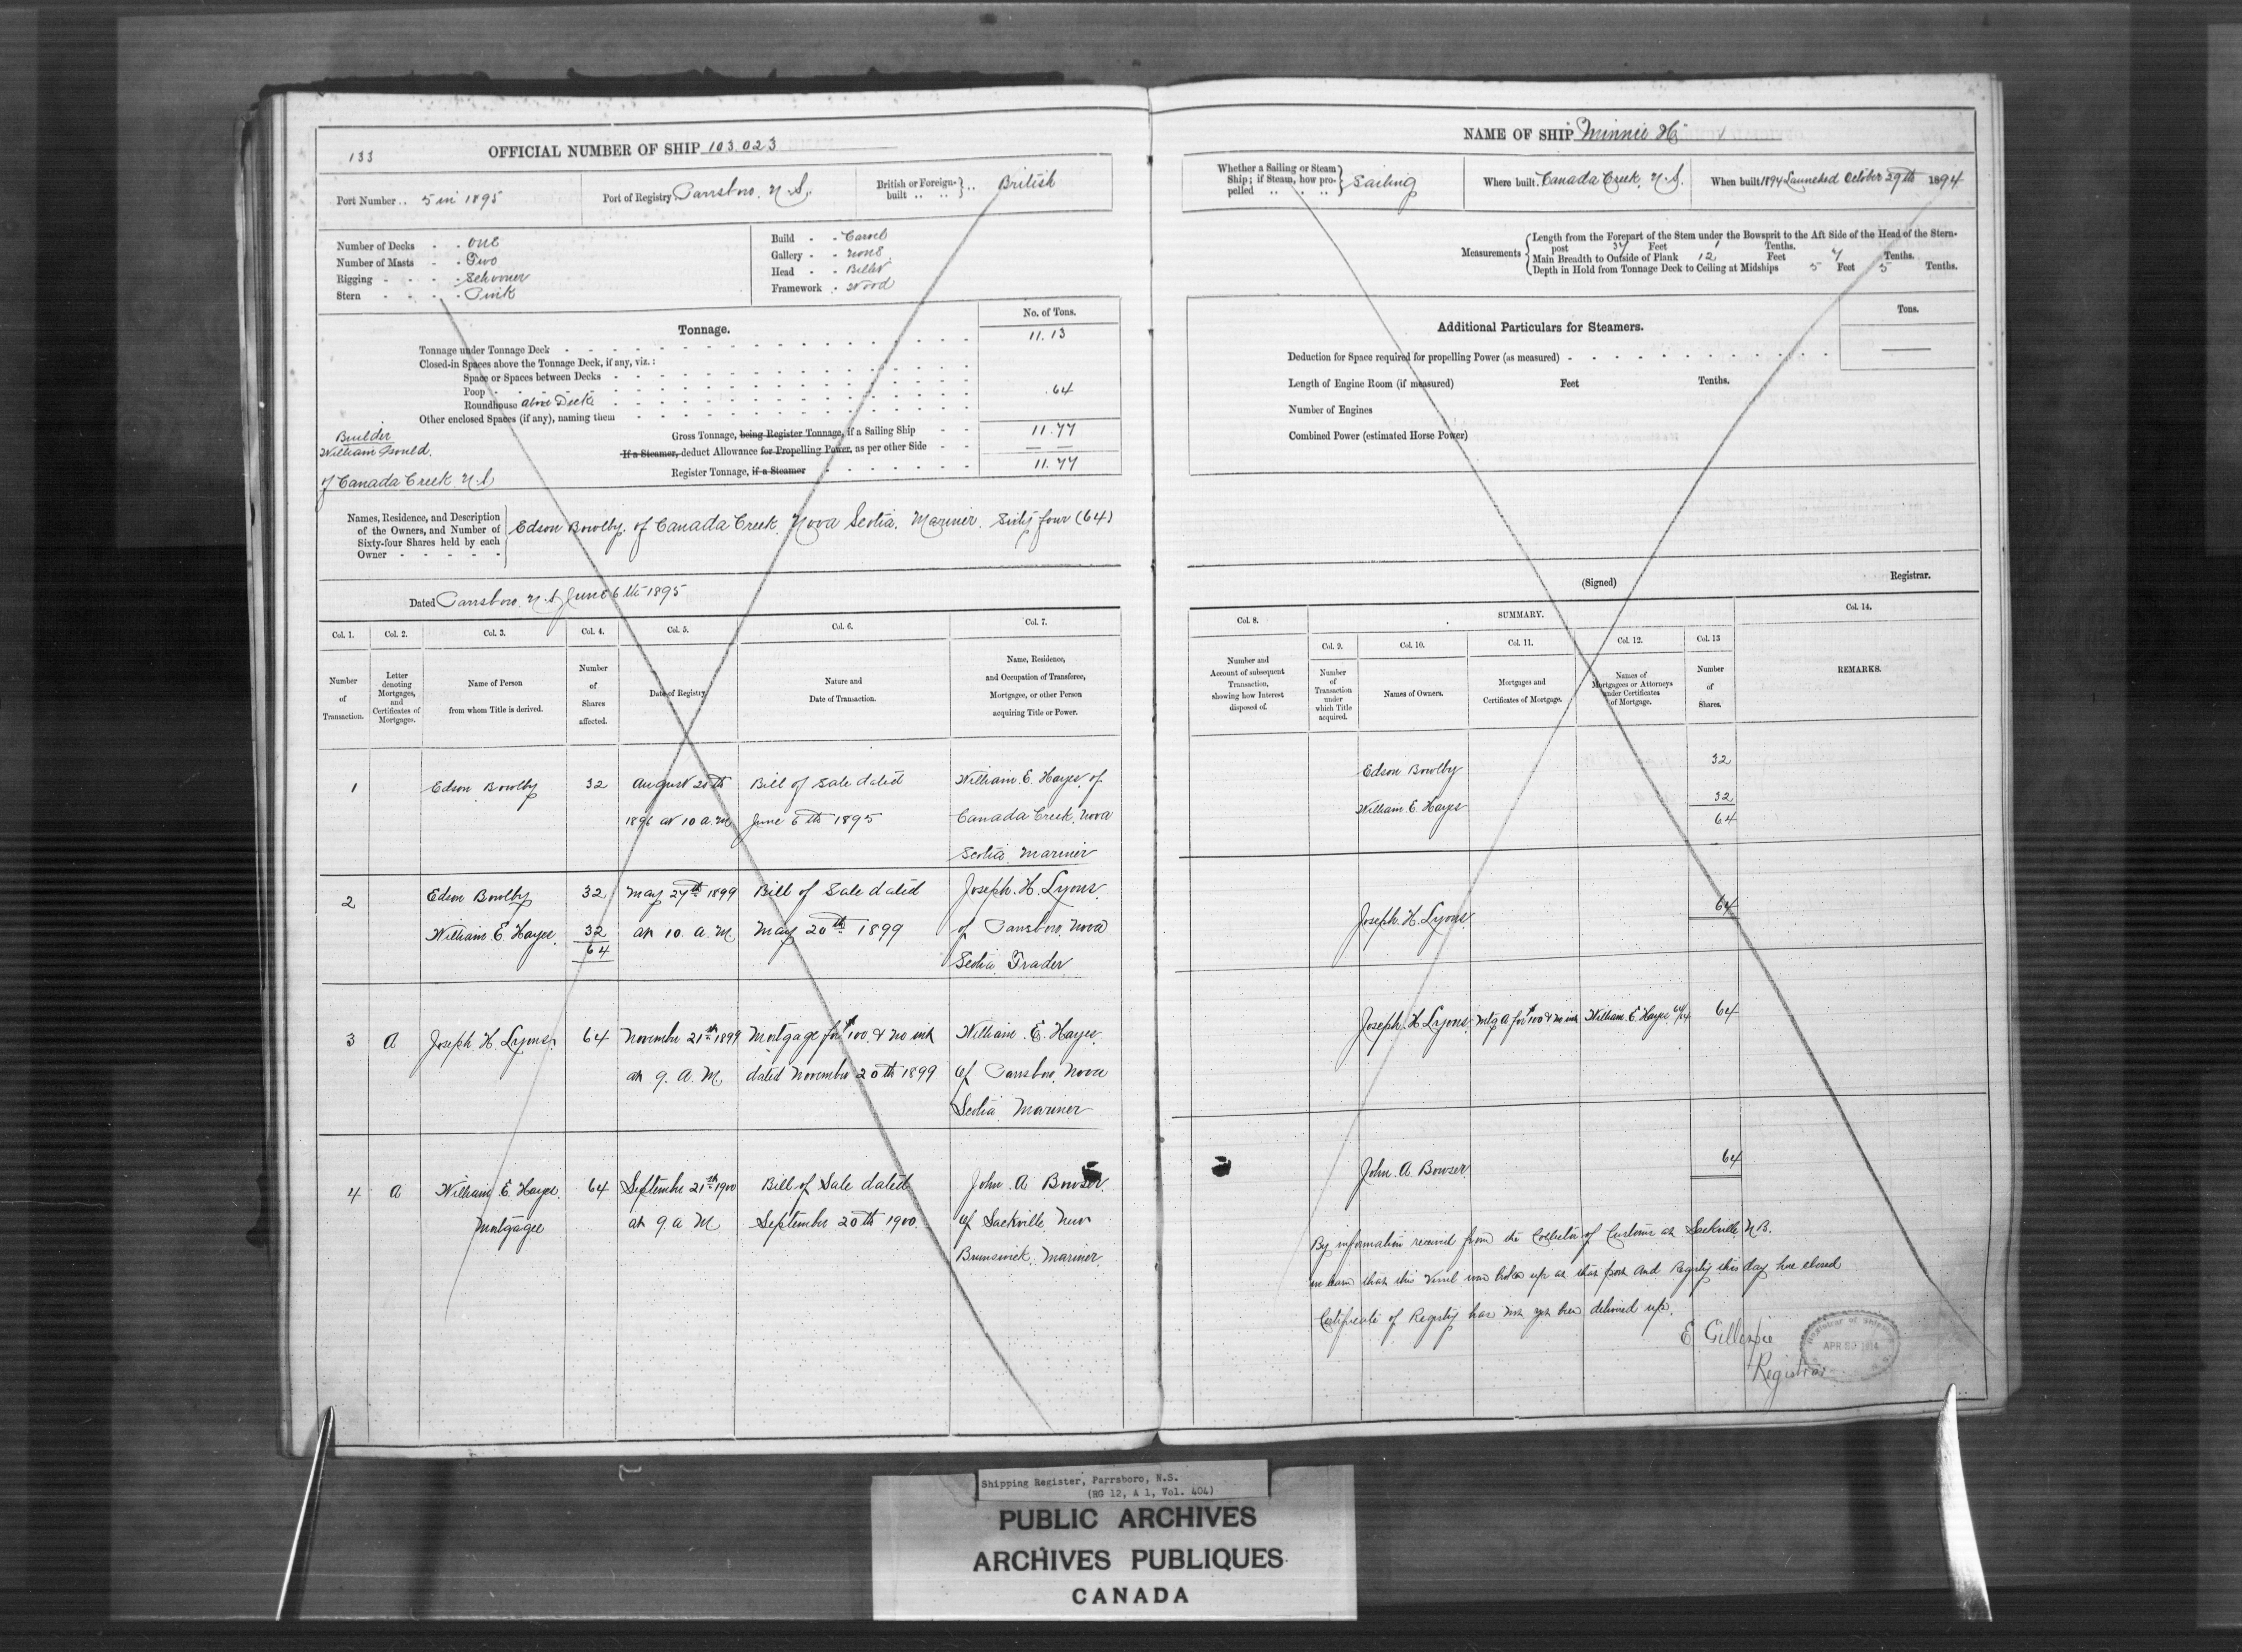 133
OFFICIAL NUMBER OF SHIP 103.023
Port Number .. 5 in 1895
Port of Registry Parrsboro. N.S.
British or Foreign-built .. .. } .. British
Number of Decks - - One
Number of Masts - - Two
Rigging - - - - Schooner
Stern - - - - Pink
Build - - Carvel
Gallery - - None
Head - - Billet
Framework - Wood
Tonnage.
No. of Tons.
Tonnage under Tonnage Deck 11.13
Closed-in Spaces above the Tonnage Deck, if any, viz.:
Space or Spaces between Decks
Poop
Roundhouse above Deck .64
Other enclosed Spaces (if any), naming them
Gross Tonnage, being Register Tonnage, if a Sailing Ship 11.77
If a Steamer, deduct Allowance for Propelling Power, as per other Side — —
Register Tonnage, if a Steamer 11.77
Builder
William Gould.
of Canada Creek N.S
Names, Residence, and Description
of the Owners, and Number of
Sixty-four Shares held by each
Owner
Edson Bowlby. of Canada Creek. Nova Scotia. Mariner. Sixty four (64)
Dated Parrsboro. N.S. June 6th 1895
Col. 1. Col. 2. Col. 3. Col. 4. Col. 5. Col. 6. Col. 7.
Number of Transaction.
Letter denoting Mortgages, and Certificates of Mortgages.
Name of Person from whom Title is derived.
Number of Shares affected.
Date of Registry.
Nature and Date of Transaction.
Name, Residence, and Occupation of Transferee, Mortgagee, or other Person acquiring Title or Power.
1 Edson Bowlby 32 August 20th Bill of Sale dated William E. Hayes of
1896 at 10 a.m June 6th 1895 Canada Creek. Nova
Scotia. Mariner
2 Edson Bowlby 32 May 27th 1899 Bill of Sale dated Joseph. H. Lyons.
William E. Hayes. 32 at 10. a. M. May 20th 1899 of Parrsboro, Nova
64 Scotia Trader
3 A Joseph H. Lyons. 64 November 21st 1899 Mortgage for $100. & no int William. E. Hayes.
at 9. a. M dated November 20th 1899 of Parrsboro. Nova
Scotia Mariner
4 A William E. Hayes. 64 September 21st 1900 Bill of Sale dated John. A Bowser.
Mortgagee at 9 a. M September 20th 1900. of Sackville. New
Brunswick. Mariner.
NAME OF SHIP Minnie H.
Whether a Sailing or Steam Ship; if Steam, how propelled .. .. } Sailing
Where built. Canada Creek. N.S.
When built 1894 Launched October 29th 1894
Measurements
Length from the Forepart of the Stem under the Bowsprit to the Aft Side of the Head of the Stern-
post 37 Feet 1 Tenths.
Main Breadth to Outside of Plank 12 Feet 7 Tenths.
Depth in Hold from Tonnage Deck to Ceiling at Midships 5 Feet 5 Tenths.
Additional Particulars for Steamers.
Tons.
Deduction for Space required for propelling Power (as measured)
Length of Engine Room (if measured) Feet Tenths.
Number of Engines
Combined Power (estimated Horse Power)
(Signed) Registrar.
Col. 8. SUMMARY. Col. 14.
Col. 9. Col. 10. Col. 11. Col. 12. Col. 13
Number and Account of subsequent Transaction, showing how Interest disposed of.
Number of Transaction under which Title acquired.
Names of Owners.
Mortgages and Certificates of Mortgage.
Names of Mortgagees or Attorneys under Certificates of Mortgage.
Number of Shares.
REMARKS.
Edson Bowlby 32
William E. Hayes 32
64
Joseph. H. Lyons. 64
Joseph. H Lyons. Mtg A for $100 & no int William. E. Hayes 64/64 64
John. A Bowser 64
By information received from the Collector of Customs at Sackville, N.B.
we learn that this Vessel was broken up at that port and Registry this day here closed
Certificate of Registry has not yet been delivered up.
E Gillespie
Registrar
Registrar of Shipping
APR 30 1914
Shipping Register, Parrsboro, N.S.
(RG 12, A 1, Vol. 404)
PUBLIC ARCHIVES
ARCHIVES PUBLIQUES
CANADA